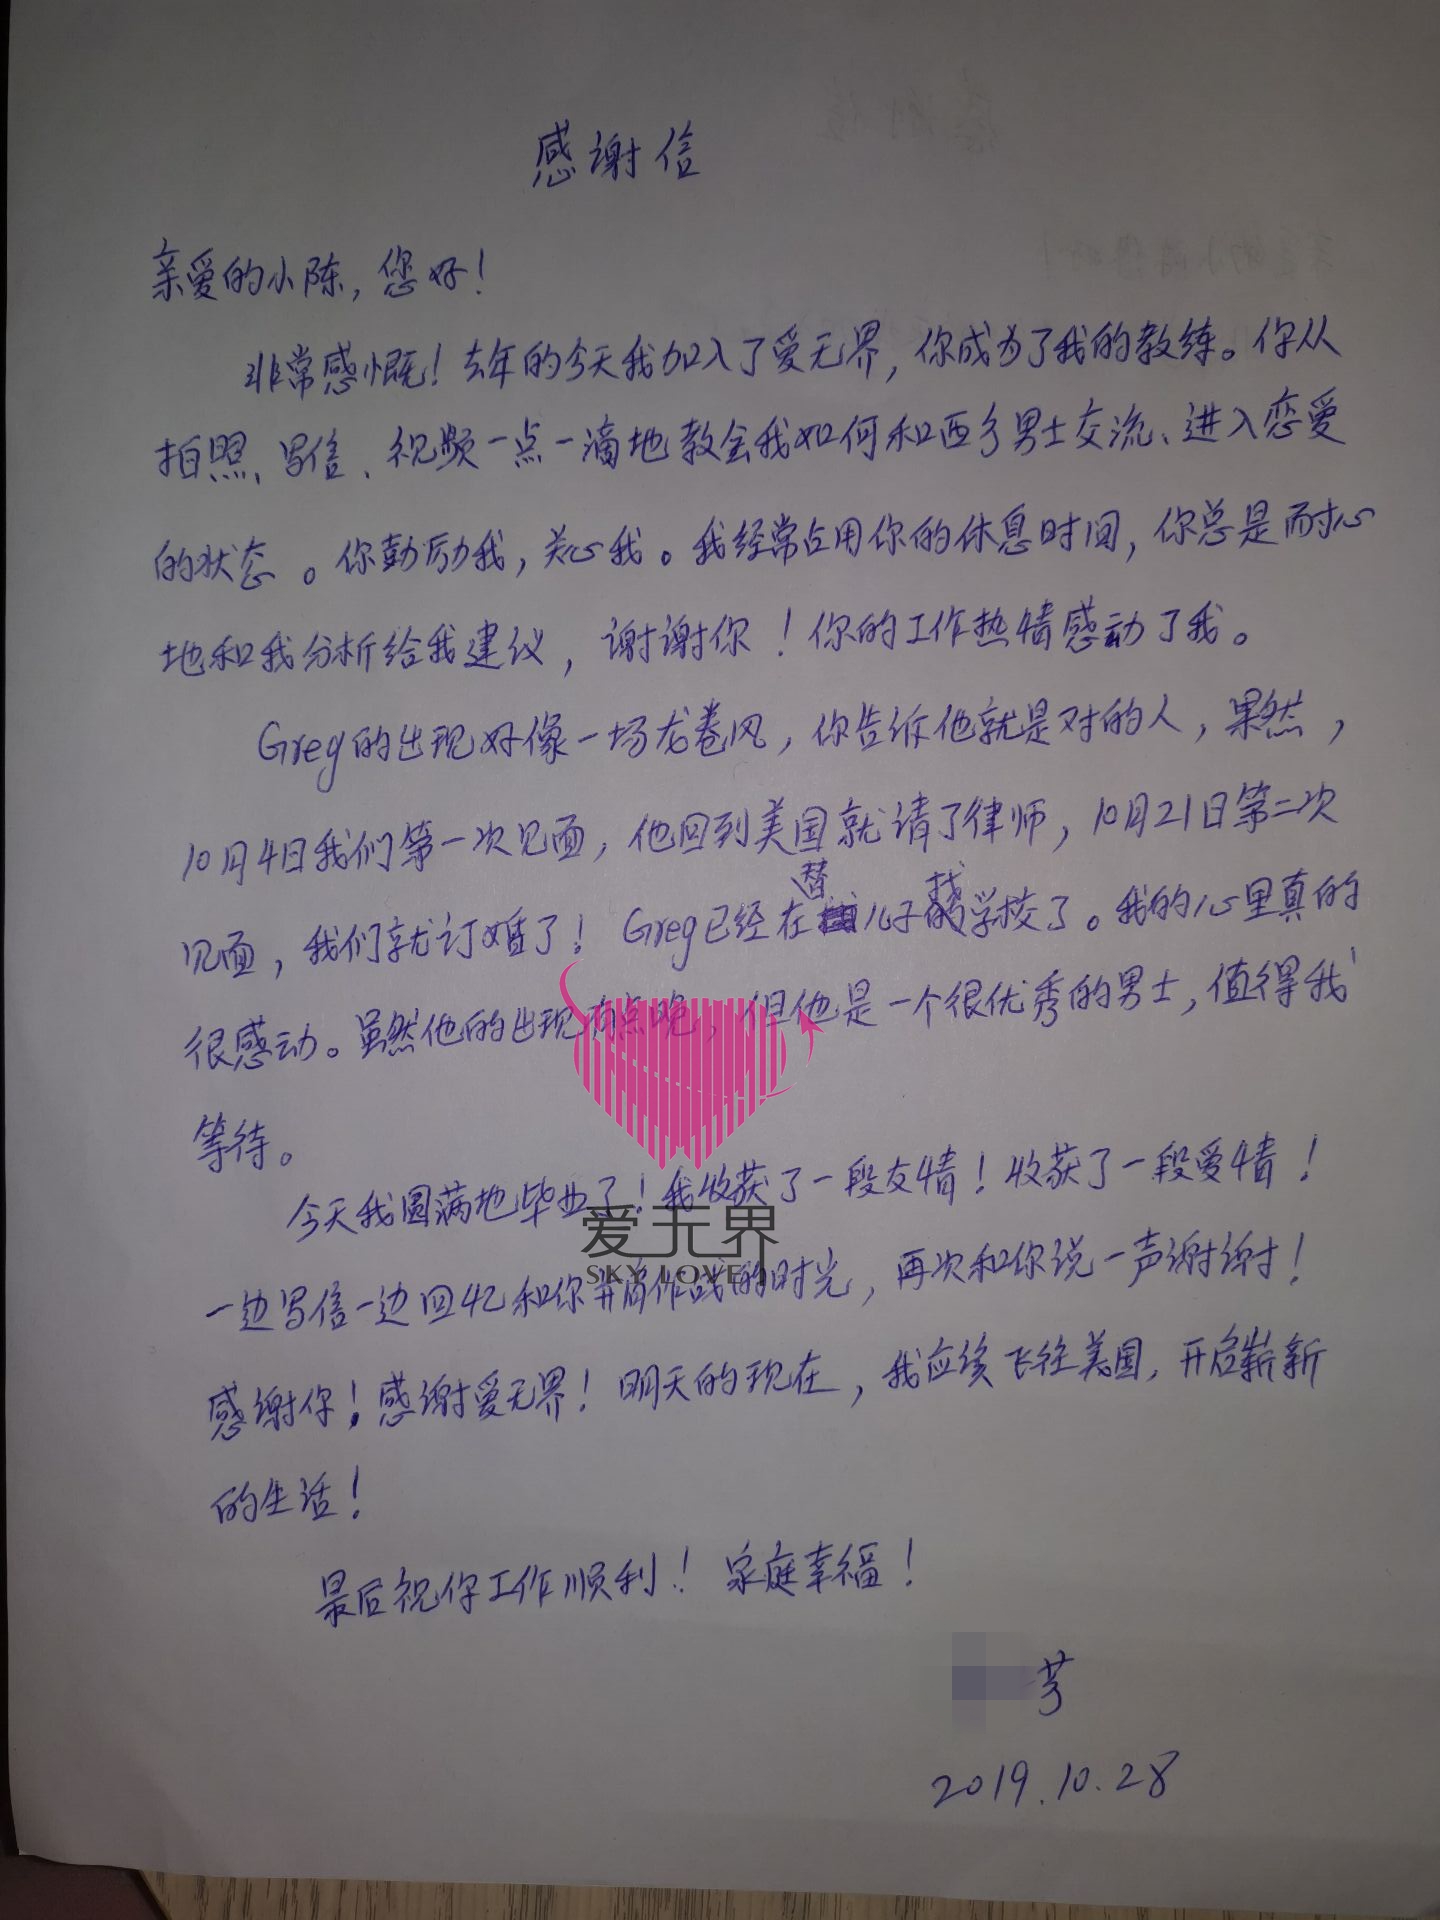 感谢信
亲爱的小陈，您好！
非常感慨！去年的今天我加入了爱无界，你成为了我的教练。你从
拍照、写信、视频一点一滴地教会我如何和西方男士交流、进入恋爱
的状态。你鼓励我，关心我。我经常占用你的休息时间，你总是耐心
地和我分析给我建议，谢谢你！你的工作热情感动了我。
Greg的出现好像一场龙卷风，你告诉他就是对的人，果然，
10月4日我们第一次见面，他回到美国就请了律师，10月21日第二次
见面，我们就订婚了！Greg已经在替儿子找学校了。我的心里真的
很感动。虽然他的出现有点晚，但他是一个很优秀的男士，值得我
等待。
今天我圆满地毕业了！我收获了一段友情！收获了一段爱情！
爱无界
SKY LOVE
一边写信一边回忆和你并肩作战的时光，再次和你说一声谢谢！
感谢你！感谢爱无界！明天的现在，我应该飞往美国，开启崭新
的生活！
最后祝你工作顺利！家庭幸福！
芳
2019.10.28